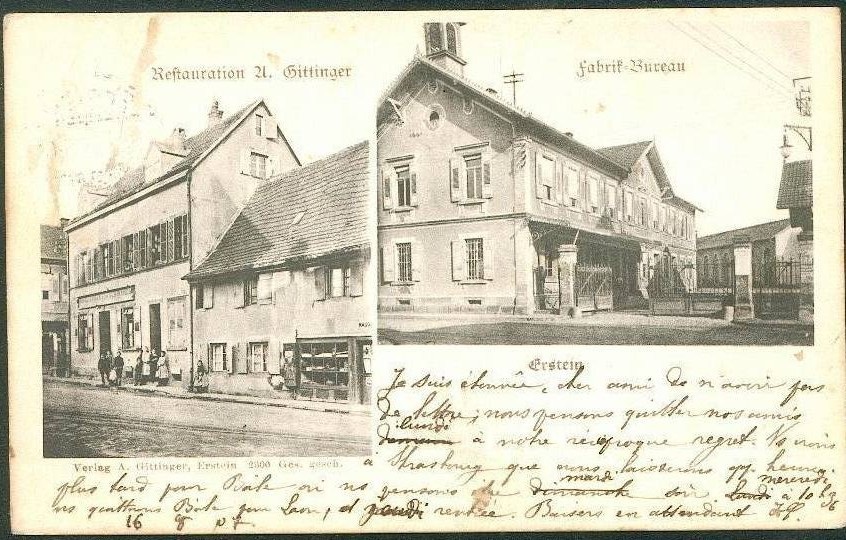 Restauration A. Gittinger
Fabrik-Bureau
Erstein
Verlag A. Gittinger, Erstein 2300 Ges. gesch.
Je suis étonnée, cher ami de n'avoir pas
de lettre; nous pensons quitter nos amis
lundi
demain à notre réciproque regret. Ns irons
à Strasbourg que nous laisserons qq. heures
plus tard pour Bâle où ns pensons être
mardi
dimanche soir, lundi
mercredi
à 10 h 36
ns quittons Bâle pr Laon, et jeudi rentrée. Baisers en attendant
16 8 07